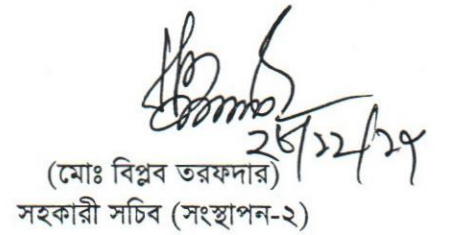 ২৮/১২/২৫
(মোঃ বিপ্লব তরফদার)
সহকারী সচিব (সংস্থাপন-২)